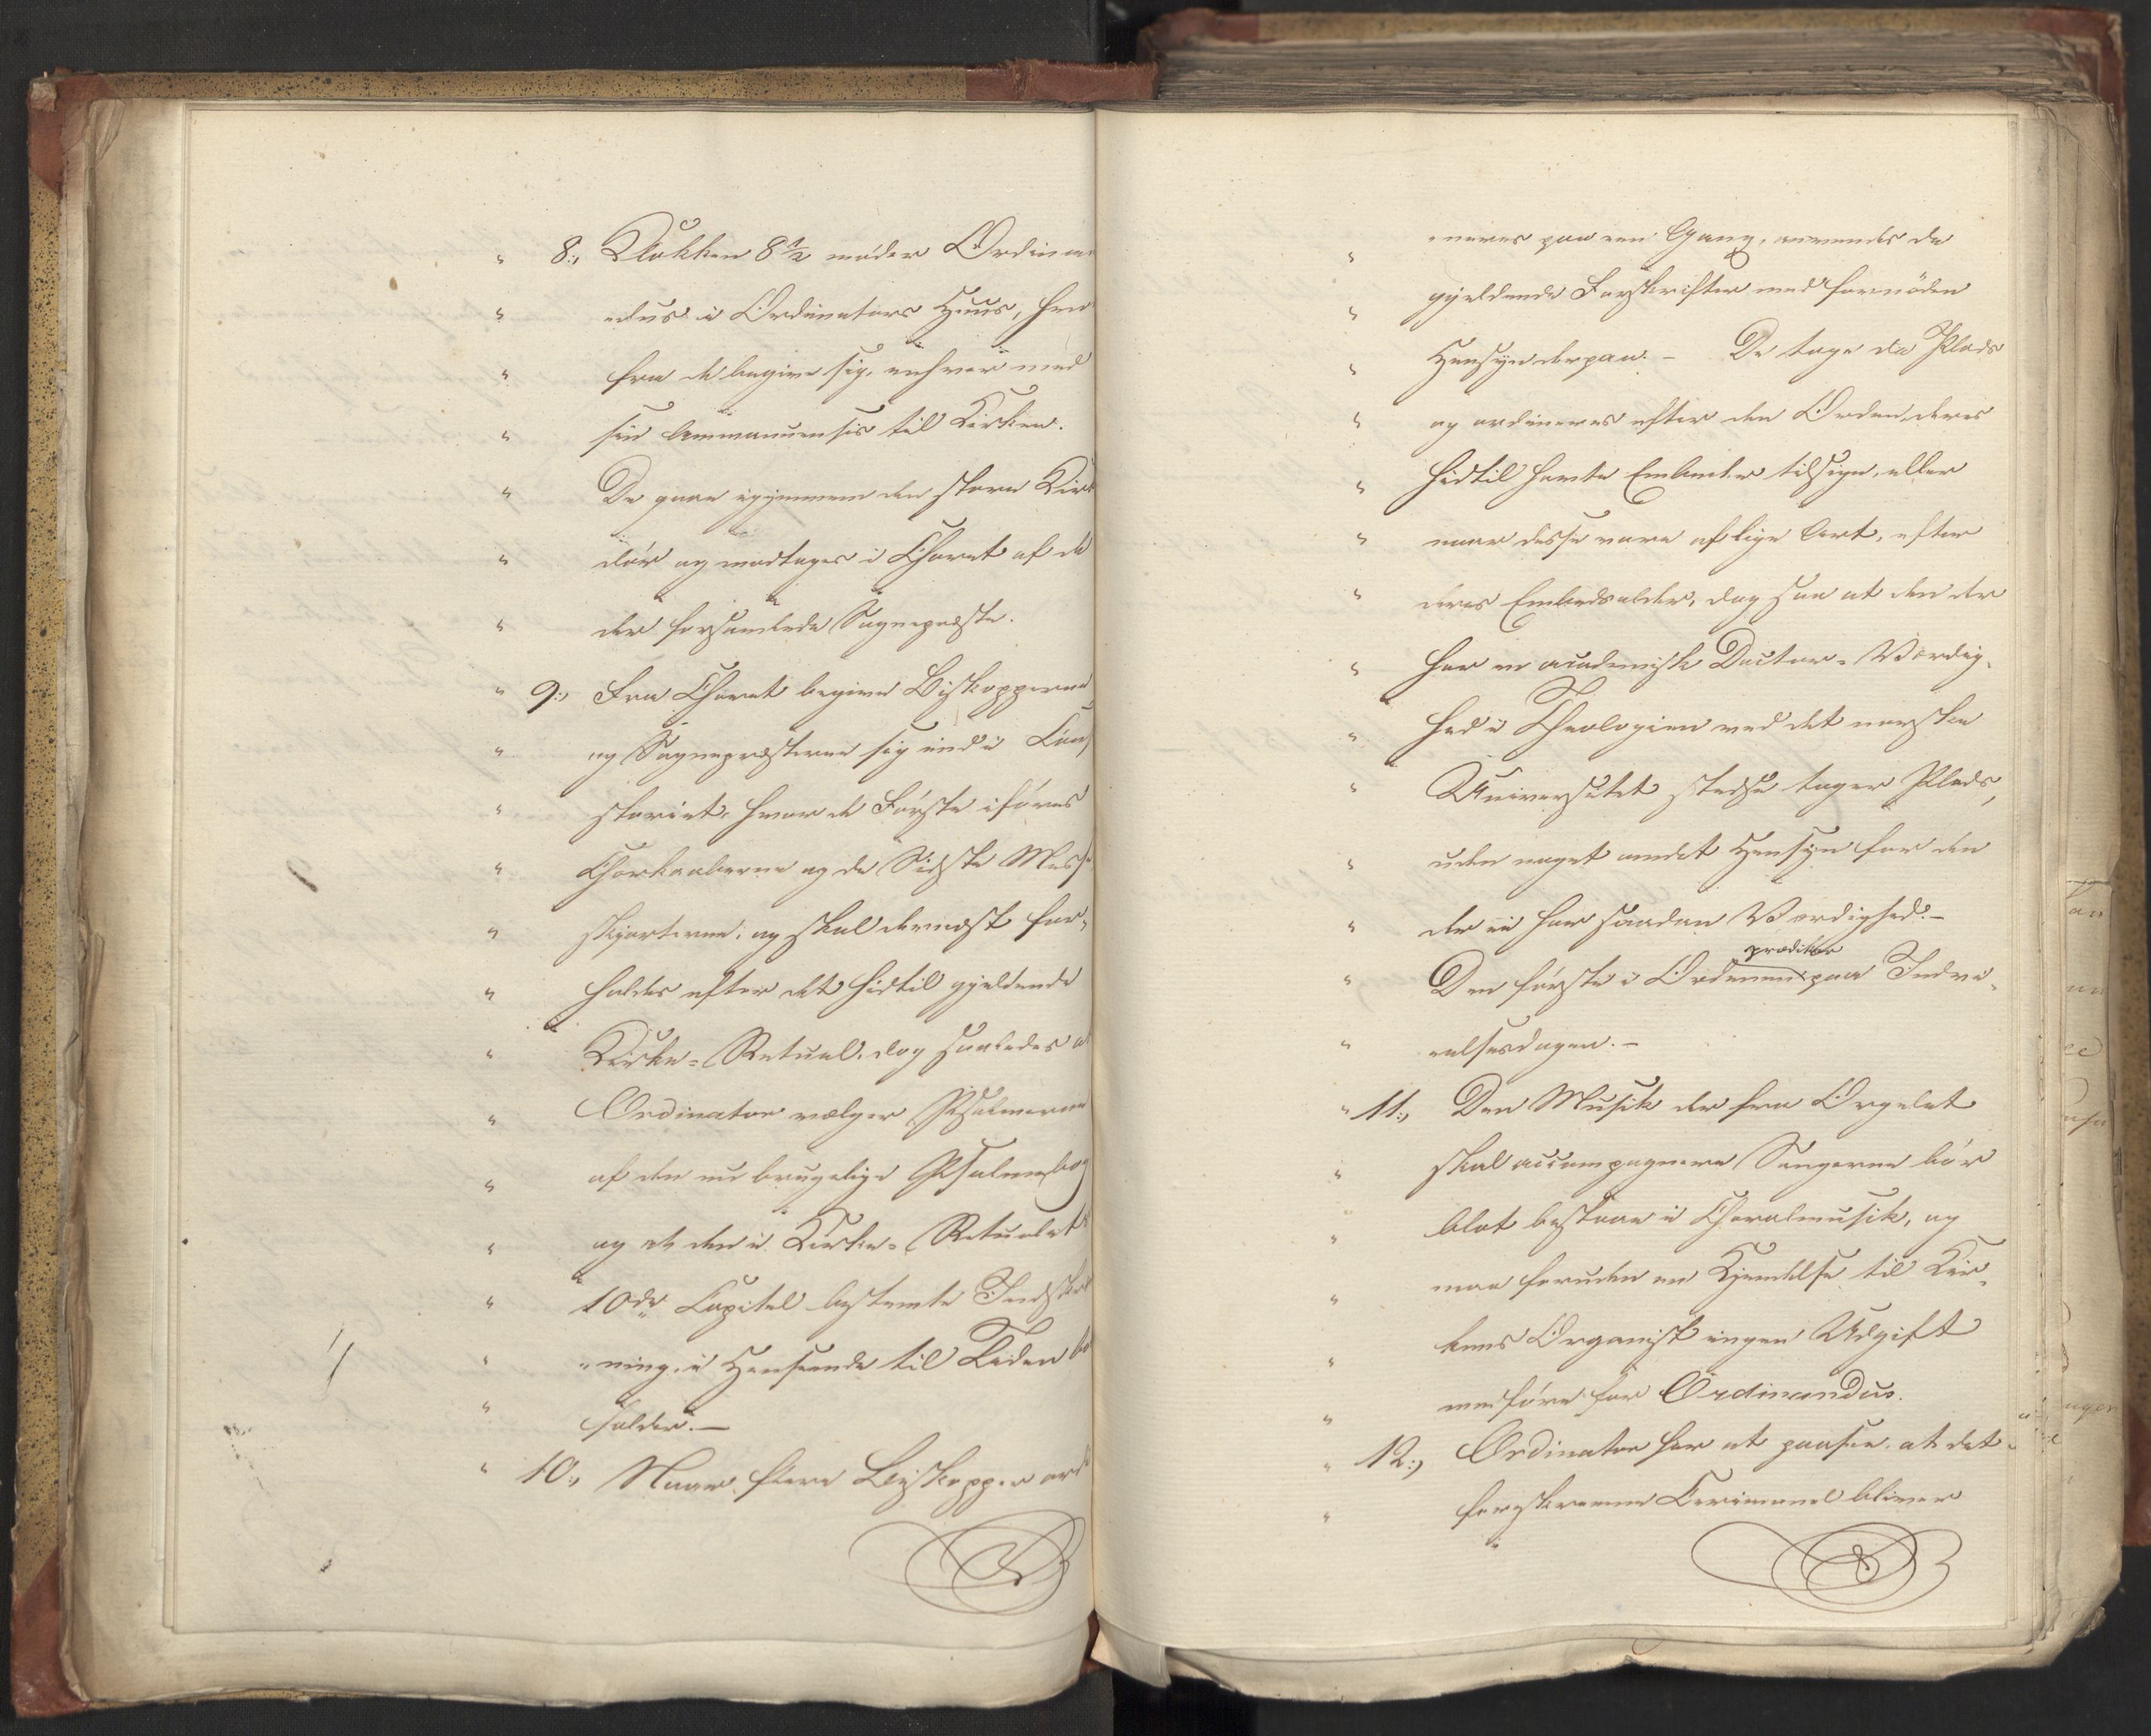 " 8:, Klokken 8 1/2 møder Ordinan
" „dus i Ordinators Huus, hvor
" fra de begive sig, enhver med
" sin Ammanuensis til Kirken.
" De gaae igjennem den store Kirk
" dør og modtages i Choret af de
" der forsamlede Sognepræste.
" 9:, Fra Choret begive Biskopperne
" og Sognepræsterne sig ind i Con
" storiet, hvor de Første iføres
" Chorkaaberne og de Sidste Mess
" skjorterne, og skal dernæst for„
" holdes efter det hidtil gjeldende
" Kirke=Ritual, dog saaledes at
" Ordinator vælger Psalmerne
" af den nu brugelige Psalmebog
" og at den i Kirke=Ritualets
" 10de Capitel bestemte Indskr
" „ning, i Henseende til Tiden bo
" falder.—
" 10:, Naar flere Biskopper ord
" „neres paa een Gang, anvendes de
" gjeldende Forskrifter med fornöden
" Hensyn derpaa. – De tage da Plads
" og ordineres efter den Orden deres
" hidtil havte Embeder tilsige, eller
" naar disse vare af lige Art, efter
" deres Embedsalder, dog saa at den der
" har en academisk Doctor=Værdig„
" hed i Theologien ved det norske
" Universitet stedse tager Plads,
" uden noget andet Hensyn for den
" der ei har saadan Værdighed.–
prædiker
" Den første i Ordenen paa Indvi„
" elsesdagen.–
" 11:, Den Musik der fra Orgelet
" skal accompagnere Sangerne bør
" blot bestaae i Choralmusik, og
" maa foruden en Kjendelse til Kir„
" kens Organist ingen Udgift
" medføre for Ordinandus.
" 12:, Ordinator har at paasee, at det
" forskrevne Ceremoniel bliver